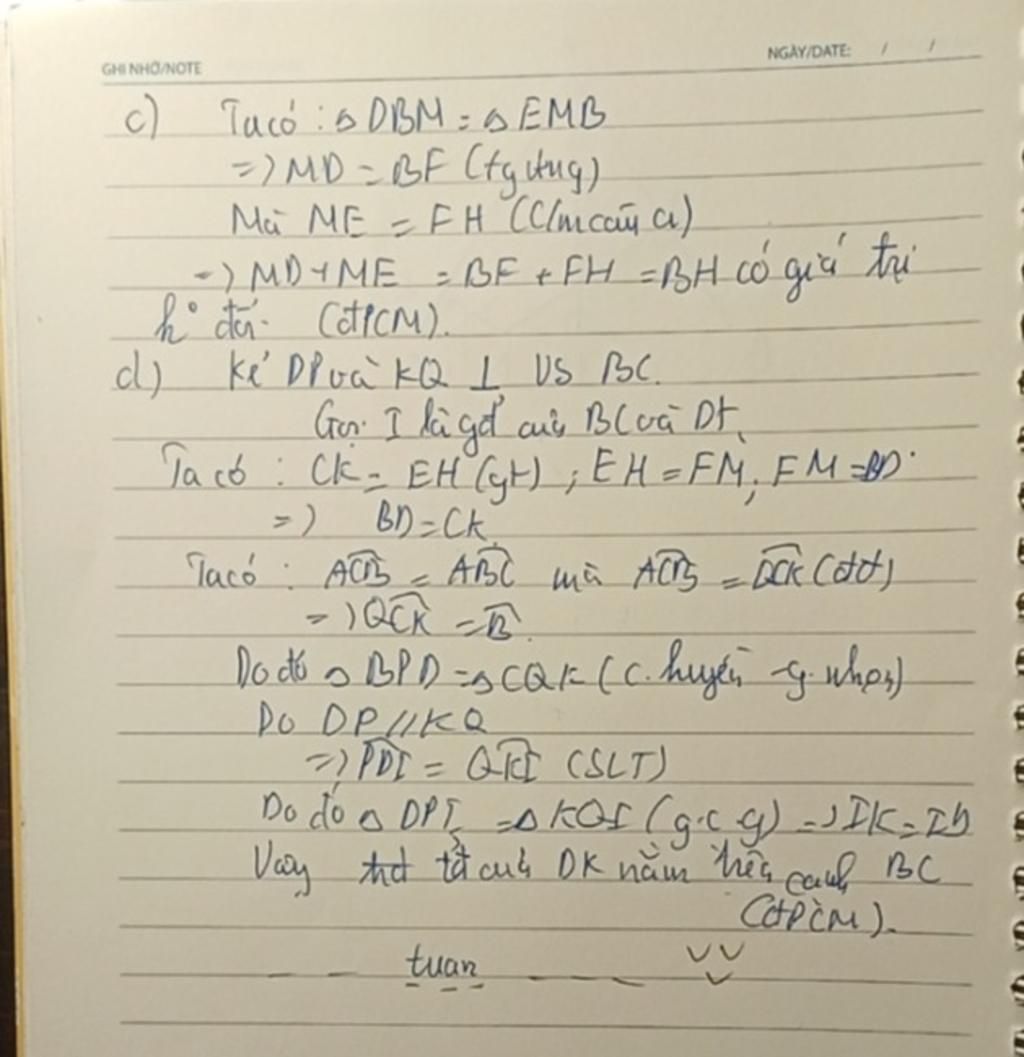 GHI NHỚ/NOTE
NGÀY/DATE: / /
c) Ta có : Δ DBM = Δ EMB
=> MD = BF (tg ứng)
Mà ME = FH (C/m câu a)
=> MD + ME = BF + FH = BH có giá trị
k° đổi. (đPCM).
d) Kẻ DP và KQ ⊥ VS BC.
Gọi I là gđ của BC và DK
Ta có : CK = EH (gt) ; EH = FM ; FM = BD.
=> BD = CK
Ta có : ACB = ABC mà ACB = QCK (đđ)
=> QCK = B.
Do đó Δ BPD = Δ CQK (c. huyền - g. nhọn)
Do DP // KQ
=> PDI = QKI (SLT)
Do đó Δ DPI = Δ KQI (g.c.g) => IK = ID
Vậy tđ của DK nằm trên cạnh BC
(đPCM).
tuan